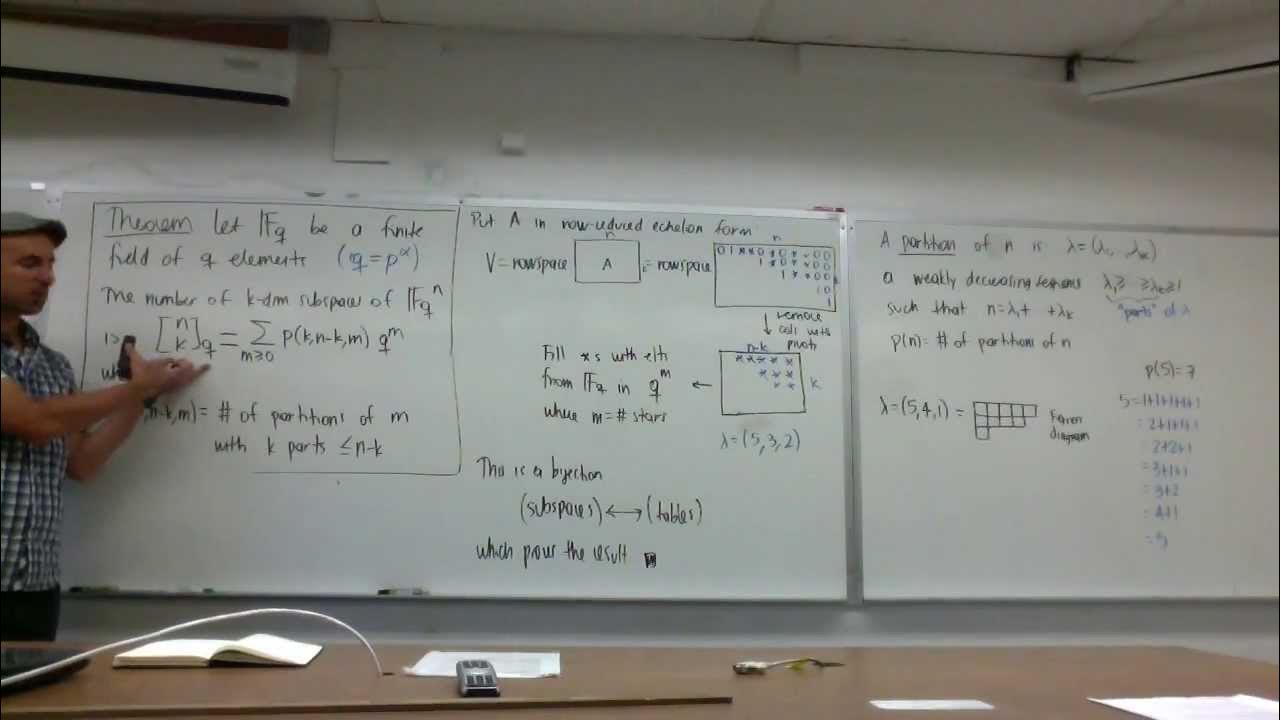 Theorem Let 𝔽q be a finite
field of q elements (q = p^α)
The number of k-dim subspaces of 𝔽q^n
is [n k]q = Σ m≥0 p(k,n-k,m) q^m
n-k,m) = # of partitions of m
with k parts ≤ n-k
Put A in row-reduced echelon form
n
n
V = rowspace A = rowspace
0 1 * * 0 * 0 * * 0 0
1 * 0 * * 0 0
1 * * 0 0
1 0
1
remove
cols with
pivots
Fill *s with elts
from 𝔽q in q^m
where m = # stars
n-k
* * * * *
* * *
* *
k
λ = (5, 3, 2)
This is a bijection
(subspaces) ↔ (tables)
which proves the result
A partition of n is λ = (λ1, λk)
a weakly decreasing λ1 ≥ ≥ λk ≥ 1
such that n = λ1 + + λk
"parts" of λ
p(n) = # of partitions of n
λ = (5,4,1) =
diagram
p(5) = 7
5 = 1+1+1+1+1
= 2+1+1+1
= 2+2+1
= 3+1+1
= 3+2
= 4+1
= 5